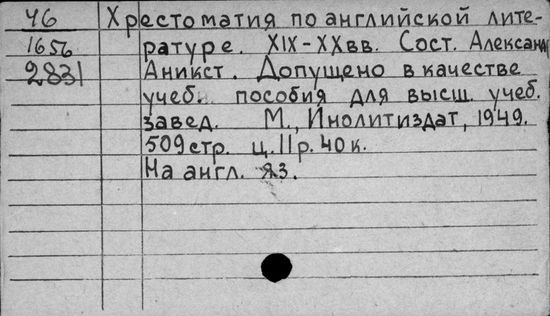 46 Хрестоматия по английской лите-
1656 ратуре. XIX-XXвв. Сост. Александ
2831 Аникст. Допущено в качестве
учебн. пособия для высш. учеб.
завед. М., Инолитиздат, 1949.
509стр. ц.11р.40к.
На англ. яз.